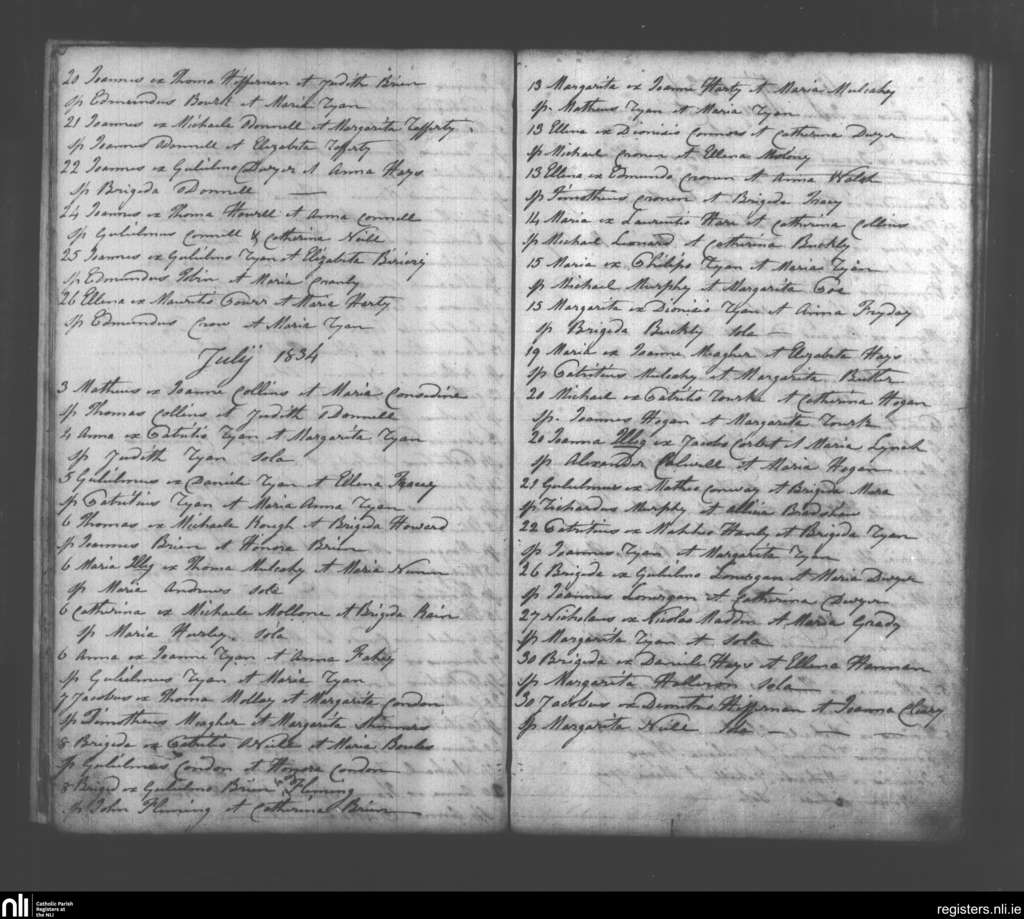 20 Joannes ex Thoma Heffernan et Judith Brien
sp Edmundus Bourk et Maria Ryan
21 Joannes ex Michaele Donnell et Margarita Rafferty
sp Joannes Donnell et Elizabeta Rafferty
22 Joannes ex Gulielmo Dwyer et Anna Hays
sp Brigida Donnell
24 Joannes ex Thoma Howell et Anna Connell
sp Gulielmus Connell & Catherina Neill
25 Joannes ex Gulielmo Ryan et Elizabeta
sp Edmundus Tobin et Maria
26 Ellena ex Mauritio et Maria Harty
sp Edmundus Crow et Maria Ryan
July 1834
3 Matheus ex Joanne Collins et Maria Considine
sp Thomas Collins et Judith Donnell
4 Anna ex Patritio Ryan et Margarita Ryan
sp Judith Ryan sola
5 Gulielmus ex Daniele Ryan et Ellena Tracey
sp Patritius Ryan et Maria Anna Ryan
6 Thomas ex Michaele Bough et Brigida Howard
sp Joannes Brien et Honora Brien
6 Maria Illeg ex Thoma Mulcahy et Maria
sp Maria Andrews sola
6 Catherina ex Michaele Mollone et Brigida
sp Maria Hurley sola
6 Anna ex Joanne Ryan et Anna Fahey
sp Gulielmus Ryan et Maria Ryan
7 Jacobus ex Thoma Molloy et Margarita Condon
sp Timotheus Meagher et Margarita
8 Brigida ex Patritio Neill et Maria
sp Gulielmus Condon et Honora Condon
8 Brigid ex Gulielmo Brien Fleming
sp John Fleming et Catherina Brien
13 Margarita ex Joanne Harty et Maria Mulcahy
sp. Matheus Ryan et Maria Ryan
13 Ellena ex Dionisio Connors et Catherina Dwyer
sp Michael Cronen et Ellena Molony
13 Ellena ex Edmundo Cronen et Anna Walsh
sp Timotheus Cronen et Brigida Tracy
14 Maria ex Laurentio Hare et Catherina Collins
sp Michael Leonard et Catherina Buckly
15 Maria ex Philipo Ryan et Maria Ryan
sp Michael Murphy et Margarita Coe
15 Margarita ex Dionisio Ryan et Anna Fryday
sp Brigida Buckly sola
19 Maria ex Joanne Meagher et Elizabeta Hays
sp Patritius Mulcahy et Margarita Butler
20 Michael ex Patritio Rourke et Catherina Hogan
sp. Joannes Hogan et Margarita Rourk
20 Joanna Illeg ex Jacobo Corbet et Maria Lynch
sp Alexander Calwell et Maria Hogan
21 Gulielmus ex Matheo Conway et Brigida Mara
sp Richardus Murphy et Allicia Bradshaw
22 Patritius ex Mattheo Hanly et Brigida Ryan
sp Joannes Ryan et Margarita Ryan
26 Brigida ex Gulielmo Lonergan et Maria Dwyer
sp Joannes Lonergan et Catherina Dwyer
27 Nicholaus ex Nicolao Madden et Maria Grady
sp Margarita Ryan et sola
30 Brigida ex Daniele Hays et Ellena Hannan
sp Margarita Halloron sola
30 Jacobus ex Demetrio Heffernan et Joanna Cleary
sp Margarita Neill Sola
nli Catholic Parish
Registers at
the NLI
registers.nli.ie